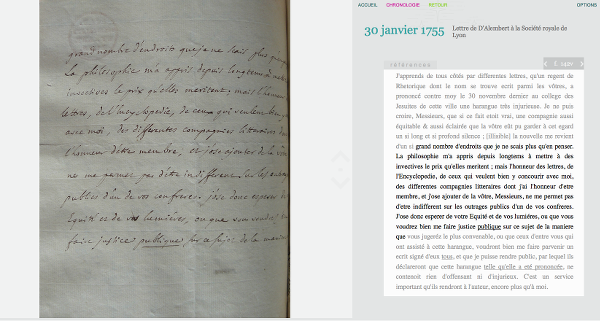 ACCUEIL CHRONOLOGIE RETOUR OPTIONS
30 janvier 1755
Lettre de D'Alembert à la Société royale de
Lyon
références
f. 149v
grand nombre d'endroits que je ne scais plus qu'en
La philosophie m'a appris depuis longtems à mettre
invectives le prix qu'elles meritent; mais l'honneur
lettres, de l'Encyclopedie, de ceux qui veulent bien y
avec moi, des differentes compagnies litteraires dont
l'honneur d'être membre, et j'ose ajouter de la vôtre
ne me permet pas d'être indifferent sur les outrages
publics d'un de vos confreres. J'ose donc esperer de
Equité et de vos lumières, ou que vous voudrez
faire justice publique sur ce sujet de la maniere
J'apprends de tous côtés par differentes lettres, qu'un regent de
Rhetorique dont le nom se trouve ecrit parmi les vôtres, a
prononcé contre moy le 30 novembre dernier au college des
Jesuites de cette ville une harangue très injurieuse. Je ne puis
croire, Messieurs, que si ce fait etoit vrai, une compagnie aussi
équitable & aussi éclairée que la vôtre eût pu garder à cet egard
un si long et si profond silence ; [illisible] la nouvelle me revient
d'un si grand nombre d'endroits que je ne scais plus qu'en penser.
La philosophie m'a appris depuis longtems à mettre à des
invectives le prix qu'elles meritent ; mais l'honneur des lettres, de
l'Encyclopedie, de ceux qui veulent bien y concourir avec moi,
des differentes compagnies litteraires dont j'ai l'honneur d'etre
membre, et Jose ajouter de la vôtre, Messieurs, ne me permet pas
d'etre indifferent sur les outrages publics d'un de vos confreres.
J'ose donc esperer de votre Equité et de vos lumières, ou que vous
voudrez bien me faire justice publique sur ce sujet de la maniere
que vous jugerez le plus convenable, ou que ceux d'entre vous qui
ont assisté à cette harangue, voudront bien me faire parvenir un
ecrit signé d'eux tous, et que je puisse rendre public, par lequel ils
déclareront que cette harangue telle qu'elle a eté prononcée, ne
contenoit rien d'offensant ni d'injurieux. C'est un service aussi
important qu'ils rendront à l'auteur, encore plus qu'à moi.